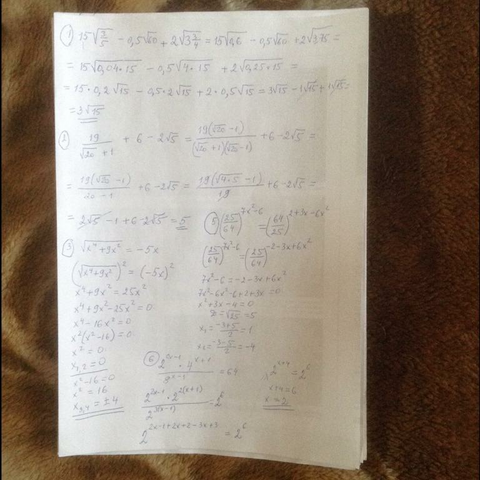 ① 15√(3/5) − 0,5√60 + 2√(3 3/4) = 15√0,6 − 0,5√60 + 2√3,75 =
= 15√0,04·15 − 0,5√4·15 + 2√0,25·15 =
= 15·0,2√15 − 0,5·2√15 + 2·0,5√15 = 3√15 − 1√15 + 1√15 =
= 3√15
② 19/(√20 + 1) + 6 − 2√5 = 19(√20 − 1)/((√20 + 1)(√20 − 1)) + 6 − 2√5 =
= 19(√20 − 1)/(20 − 1) + 6 − 2√5 = 19(√4·5 − 1)/19 + 6 − 2√5 =
= 2√5 − 1 + 6 − 2√5 = 5
③ √(x⁴ + 9x²) = −5x
(√(x⁴ + 9x²))² = (−5x)²
x⁴ + 9x² = 25x²
x⁴ + 9x² − 25x² = 0
x⁴ − 16x² = 0
x²(x² − 16) = 0
x² = 0
x₁,₂ = 0
x² − 16 = 0
x² = 16
x₃,₄ = ±4
⑤ (25/64)^(7x² − 6) = (64/25)^(2 + 3x − 6x²)
(25/64)^(7x² − 6) = (25/64)^(−2 − 3x + 6x²)
7x² − 6 = −2 − 3x + 6x²
7x² − 6x² − 6 + 2 + 3x = 0
x² + 3x − 4 = 0
= √25 = 5
x₁ = (−3 + 5)/2 = 1
x₂ = (−3 − 5)/2 = −4
⑥ 2^(2x − 1) · 4^(x + 1) / 8^(x − 1) = 64
2^(2x − 1) · 2^(2(x + 1)) / 2^(3(x − 1)) = 2⁶
2^(2x − 1 + 2x + 2 − 3x + 3) = 2⁶
2^(x + 4) = 2⁶
x + 4 = 6
x = 2